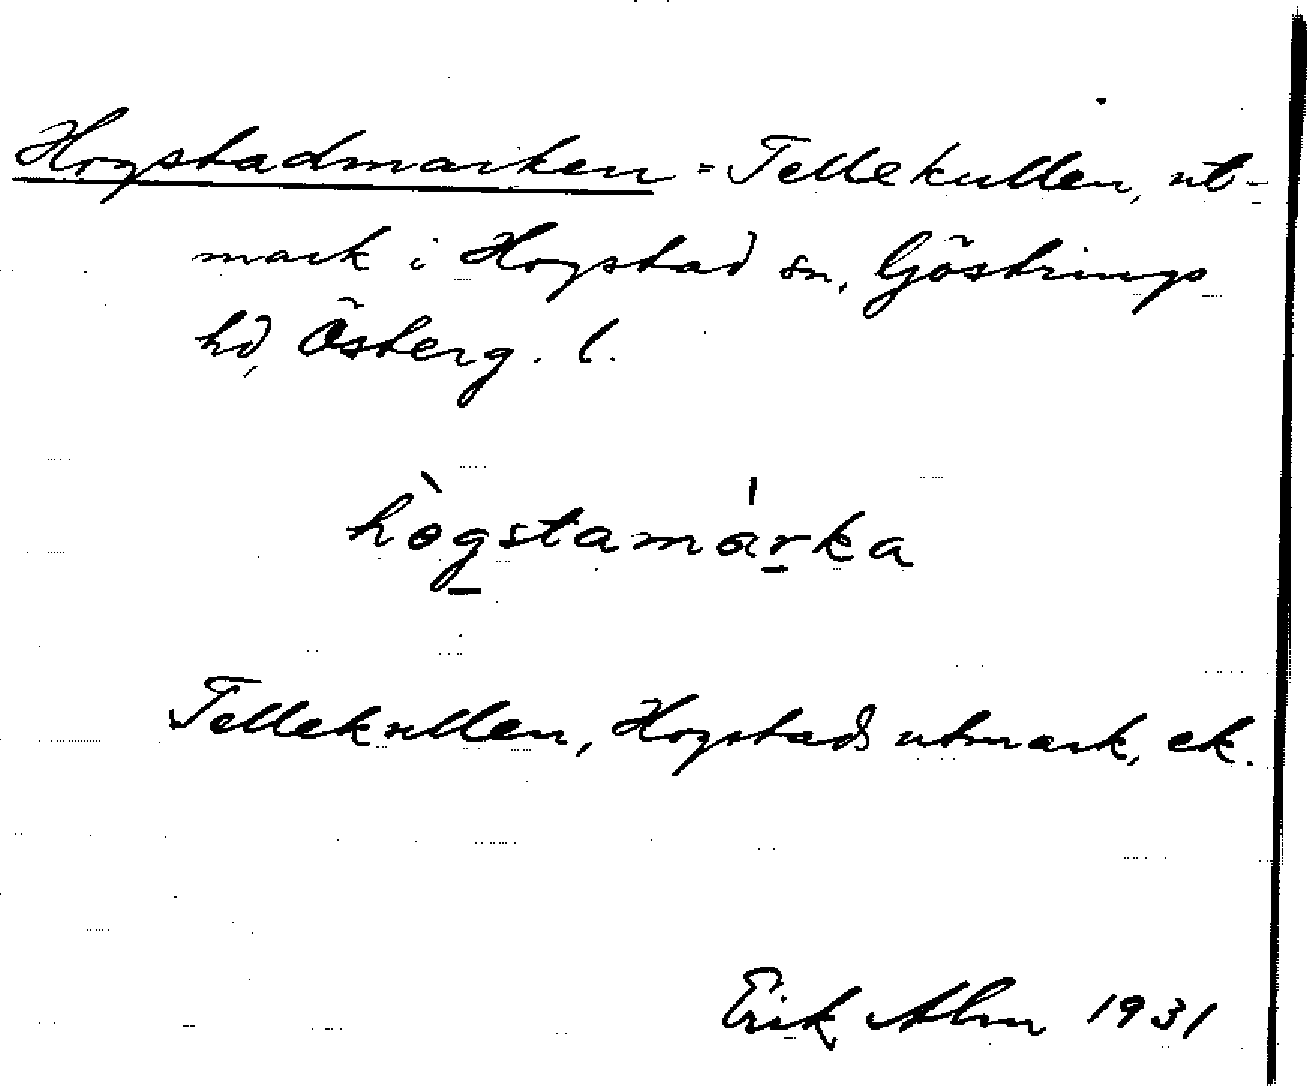 Hogstadmarken = Tellekullen, ut-
mark i Hogstad sn, Göstrings
hd, Österg. l.
hògstamárka
Tellekullen, Hogstads utmark, ek.
Erik Alm 1931